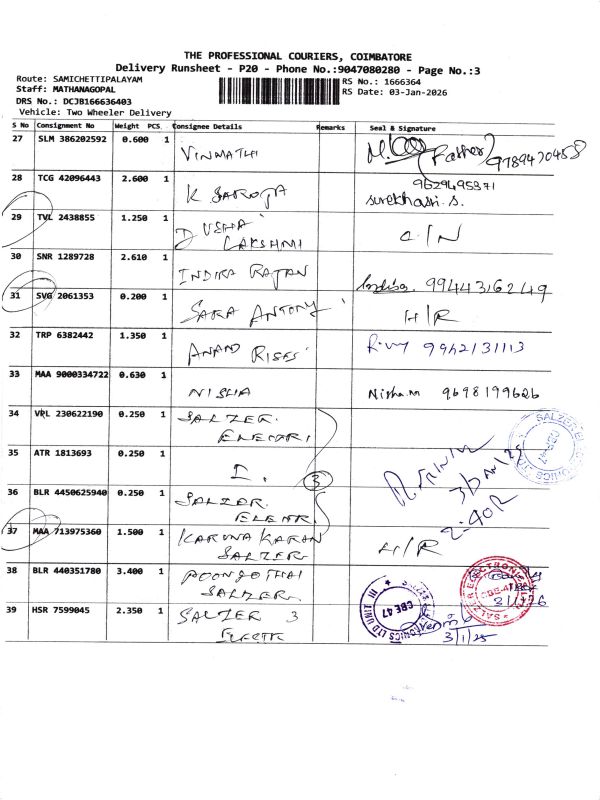 THE PROFESSIONAL COURIERS, COIMBATORE
Delivery Runsheet - P20 - Phone No.:9047080280 - Page No.:3
Route: SAMICHETTIPALAYAM
RS No.: 1666364
Staff: MATHANAGOPAL
RS Date: 03-Jan-2026
DRS No.: DCJB166636403
Vehicle: Two Wheeler Delivery
S No Consignment No Weight PCS. Consignee Details Remarks Seal & Signature
27 SLM 386202592 0.600 1 VINMATHI (Father) 9789470458
28 TCG 42096443 2.600 1 K SAROJA 9629495371
surekhasri.s.
29 TVL 2438855 1.250 1 D USHA LAKSHMI C/N
30 SNR 1289728 2.610 1 INDIRA RAJAN Indira 9944316249
31 SVG 2061353 0.200 1 SARA ANTONY H/R
32 TRP 6382442 1.350 1 ANAND 9942131113
33 MAA 9000334722 0.630 1 NISHA Nisha.m 9698199626
34 VRL 230622190 0.250 1 SALZER
35 ATR 1813693 0.250 1 3
36 BLR 4450625940 0.250 1 SALZER
2.40
37 MAA 713975360 1.500 1 KARUNAKARAN SALZER H/R
38 BLR 440351780 3.400 1 POONGOTHAI SALZER
39 HSR 7599045 2.350 1 SALZER 3
SALZER ELECTRONICS LTD UNIT III
CBE 47
SALZER ELECTRONICS
CBE-47
3/1/25